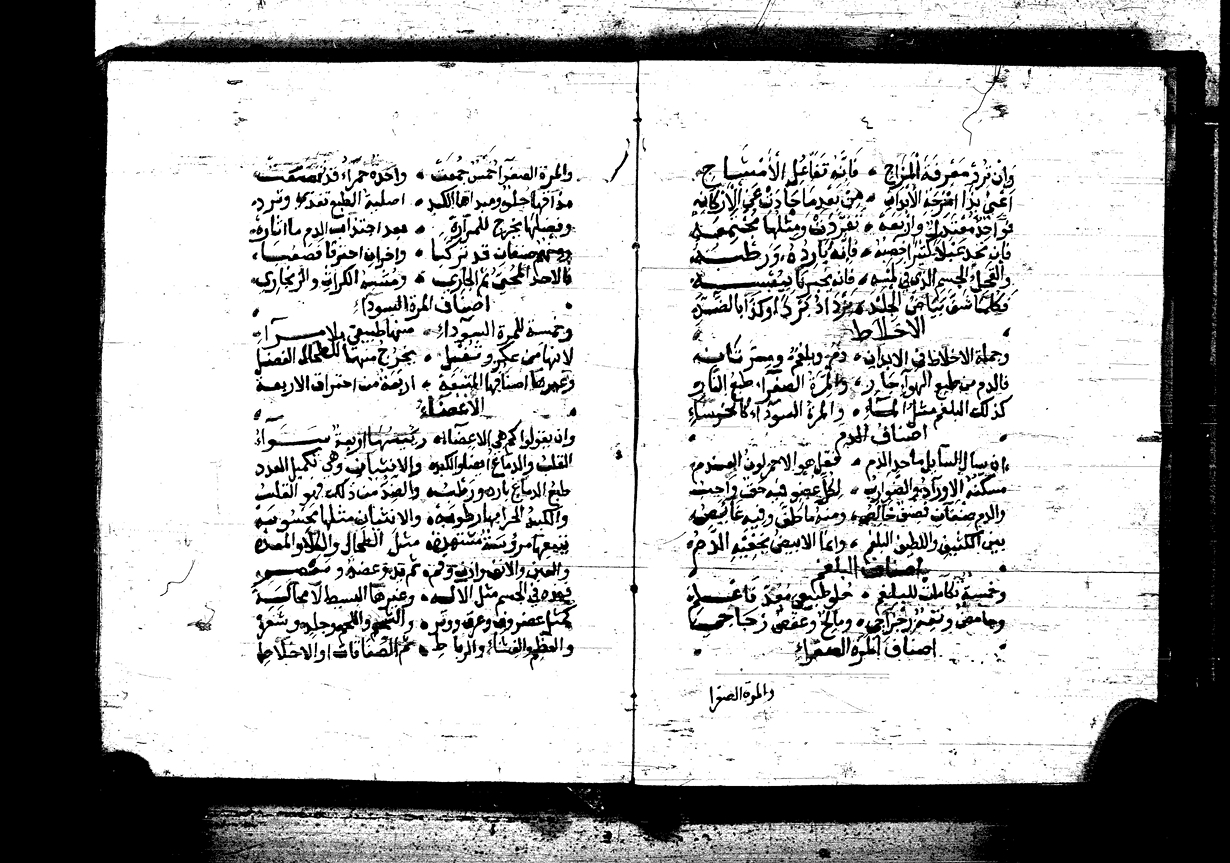 ٤
وان ترد معرفة المزاج • فانه تفاعل الأمشاج
اعني بذا امزجة الابدان • من بعد ما حادث عن الاركان
فواحد معتدل واربعة • تفردت ومثلها مجتمعة
فان تجد عبلا كثير • فانه باردة ورطبه
والقحل الجسم الذي في لمسه • فانه يخبرنا بيبسه
الاخلاط
وجملة الاخلاط في الابدان • دم وبلغم ومرتان
فالدم من طبع الهواء حار • والمرة الصفراء طبع النار
كذلك البلغم مثل الماء • والمرة السوداء كالخرساء
اصناف الدم
ان سال السايل ما حد الدم • فقل هو الاحمر لون العندم
مسكنه الاوراد الضوارب • لكل عضو فيه حق واجب
والدم صنفان فصنف خالص • ومنه ما طفى وفيه غائص
بين الكثيف واللطيف البلغم • وانما الابيض يحفيه الدم
اصناف البلغم
وخمسة تكاملت للبلغم • خلط طبيعي
وحامض وتفه • ومالح وعفص زجاجي
اصناف المرة الصفراء
والمرة الصفرا
والمرة الصفرا خمس جمعت • واحدة حمراء قد نصعت
مذاقها حلو ومبداها الكبد • اصلية الطبع
وفضلها يخرج للمرارة • بعد اجتذاب الدم
صنفان قد تركبا • واخران احترقا
فالاحد المحي ثم الجاري • ومشبه الكراث والزنجاري
اصناف المرة السوداء
وخمسة للمرة السوداء • منها طبيعي بلا مراء
لانها من عكر وتفل • يخرج منها للطحال الفضل
وغيرها اصنافها المتبعة • اربعة من احتراق الاربعة
الاعضاء
وان يقولوا كم هي الاعضاء • رئيسها اربعة سواء
القلب والدماغ ايضا والكبد • والانثيان وهي تكميل العدد
طبع الدماغ بارد ورطب • والضد من ذلك فهو القلب
والكبد الحرا بها رطوبة • والانثيان مثلها محسوبه
يتبعها مرؤسة مشتهره • مثل الطحال والكلا والمعده
فهذه في الجسم مثل الاله • وغيرها البسيط لا محاله
كمثل غضروف وعرق ووتر • والشحم واللحم وجلد وشعر
والعظم والغشاء والرباط • ثم الصفاقات او الاخلاط